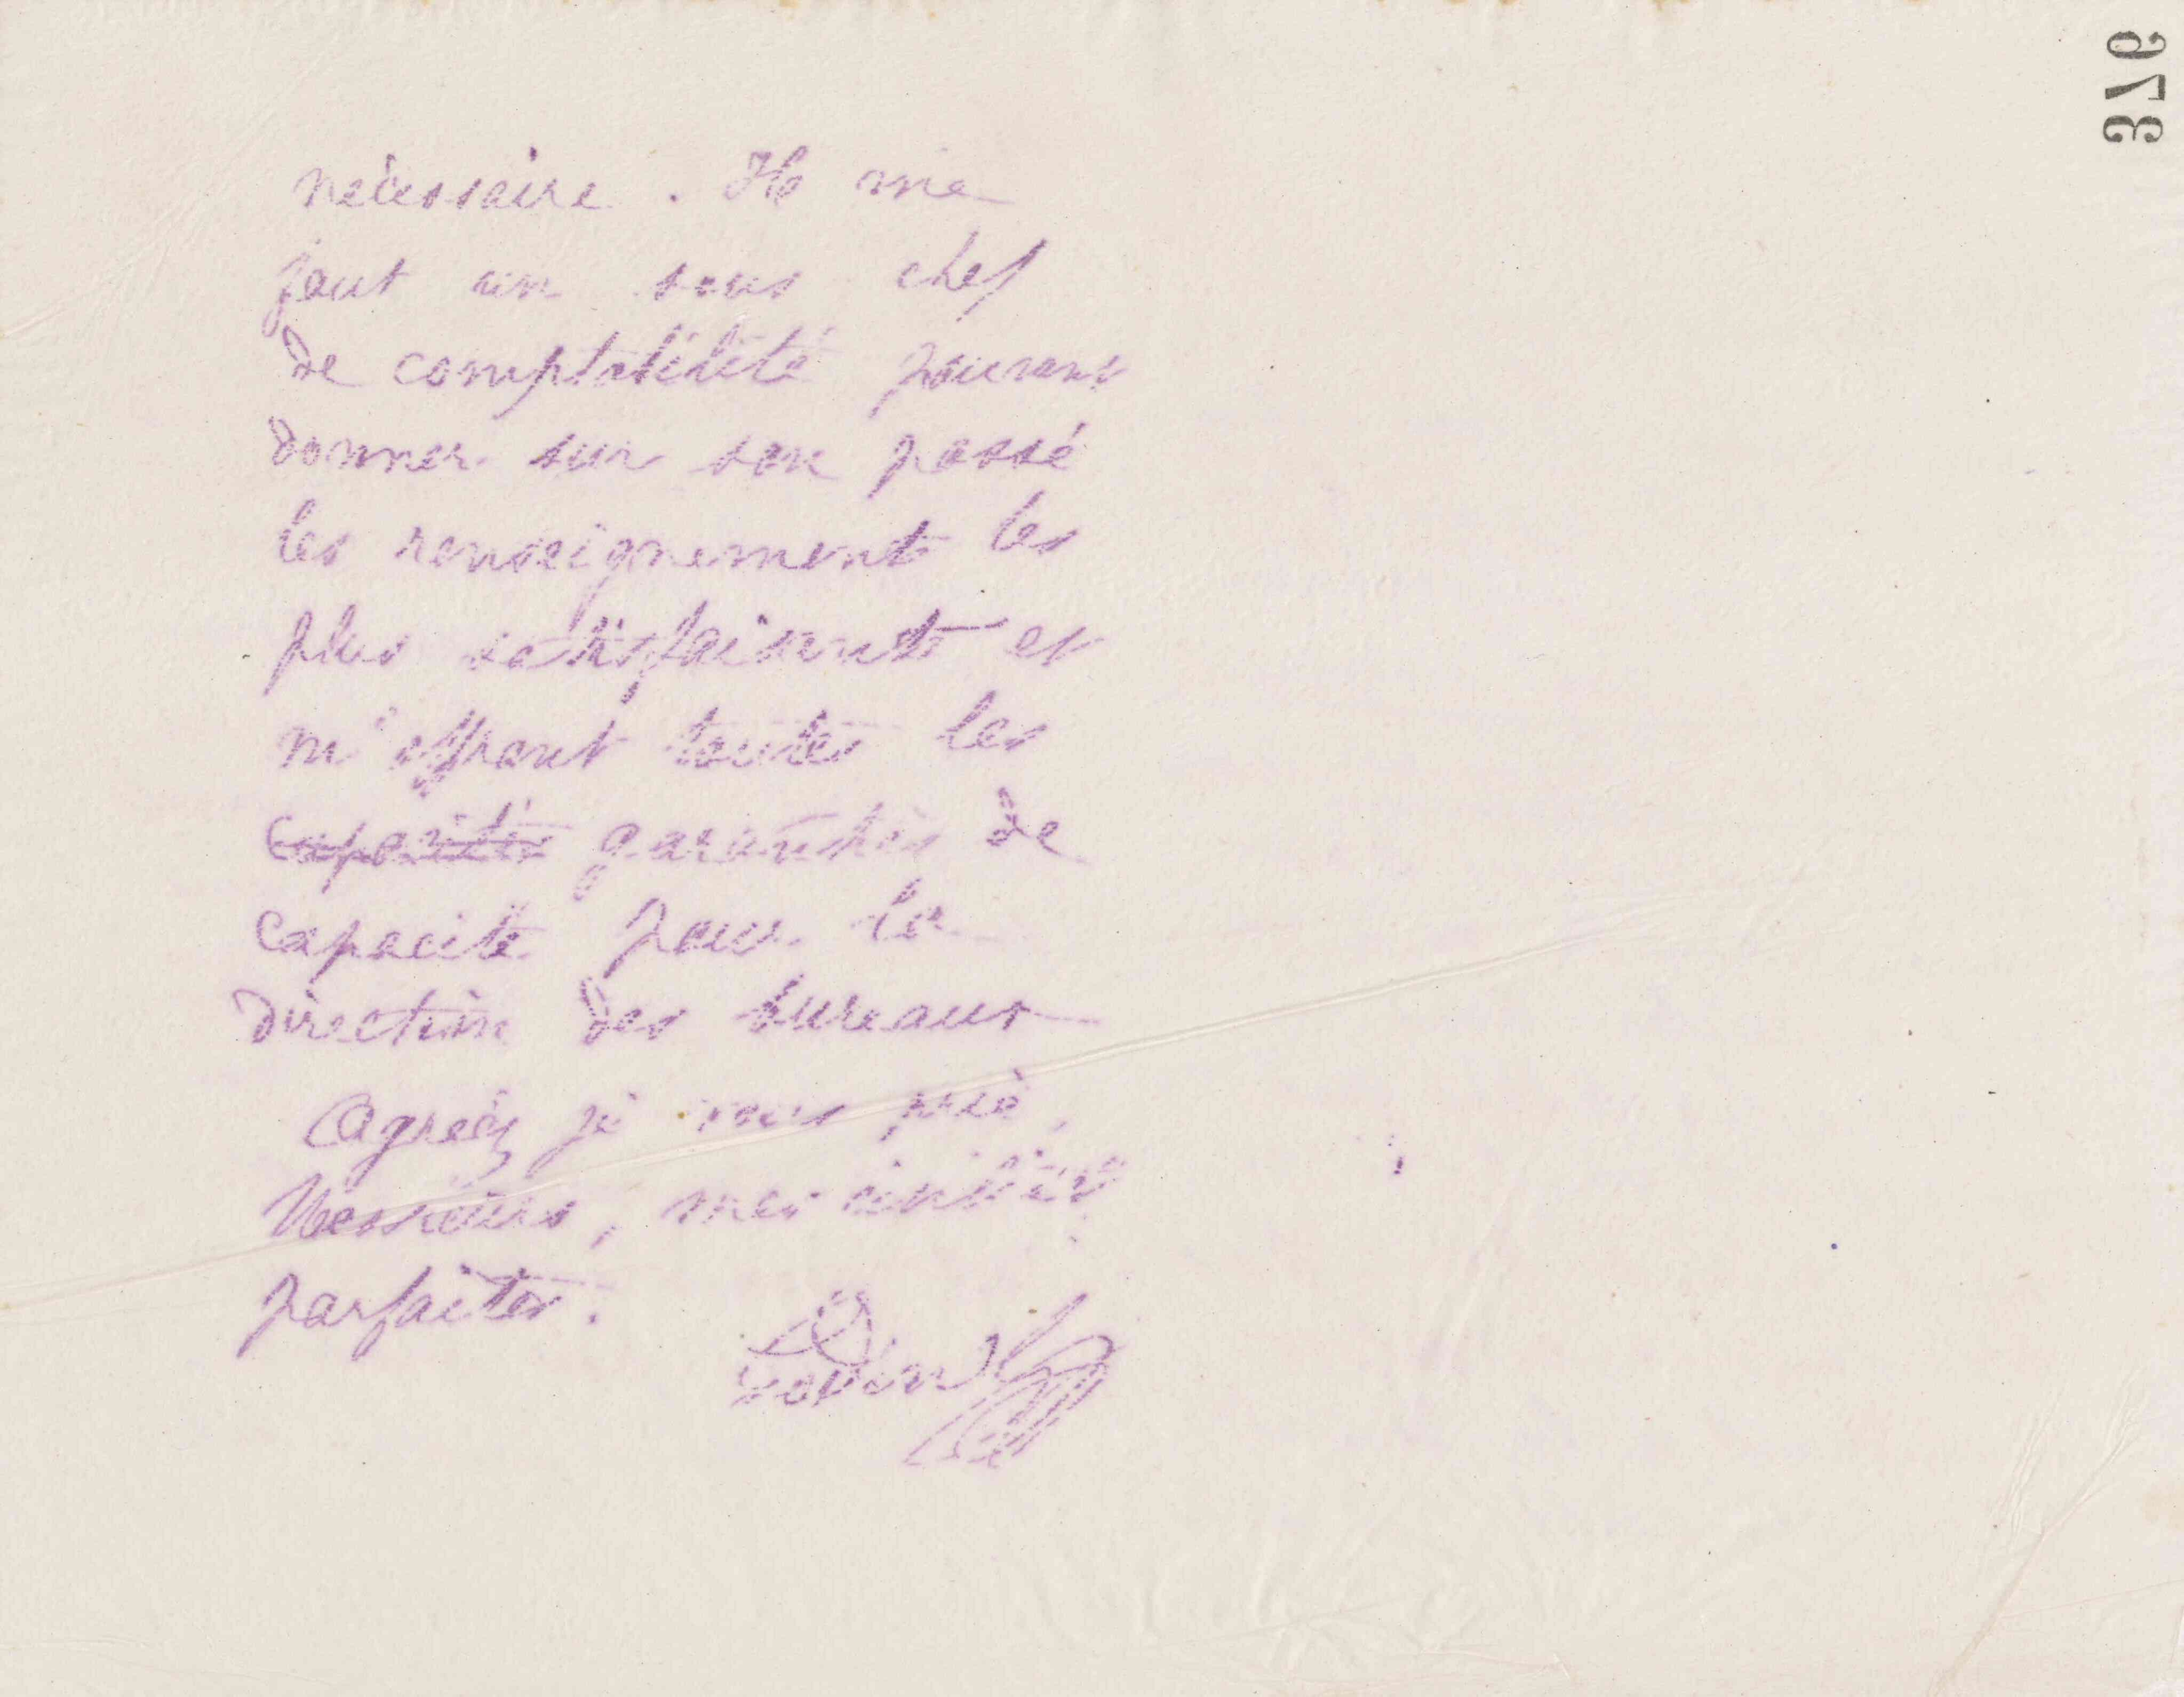 376
nécessaire. Il me
faut un sous chef
de comptabilité pouvant
donner sur son passé
les renseignements les
plus satisfaisants et
m'offrant toutes les
capacités garanties de
capacité pour la
direction des bureaux
Agréez je vous prie,
Messieurs, mes civilités
parfaites.
Godin